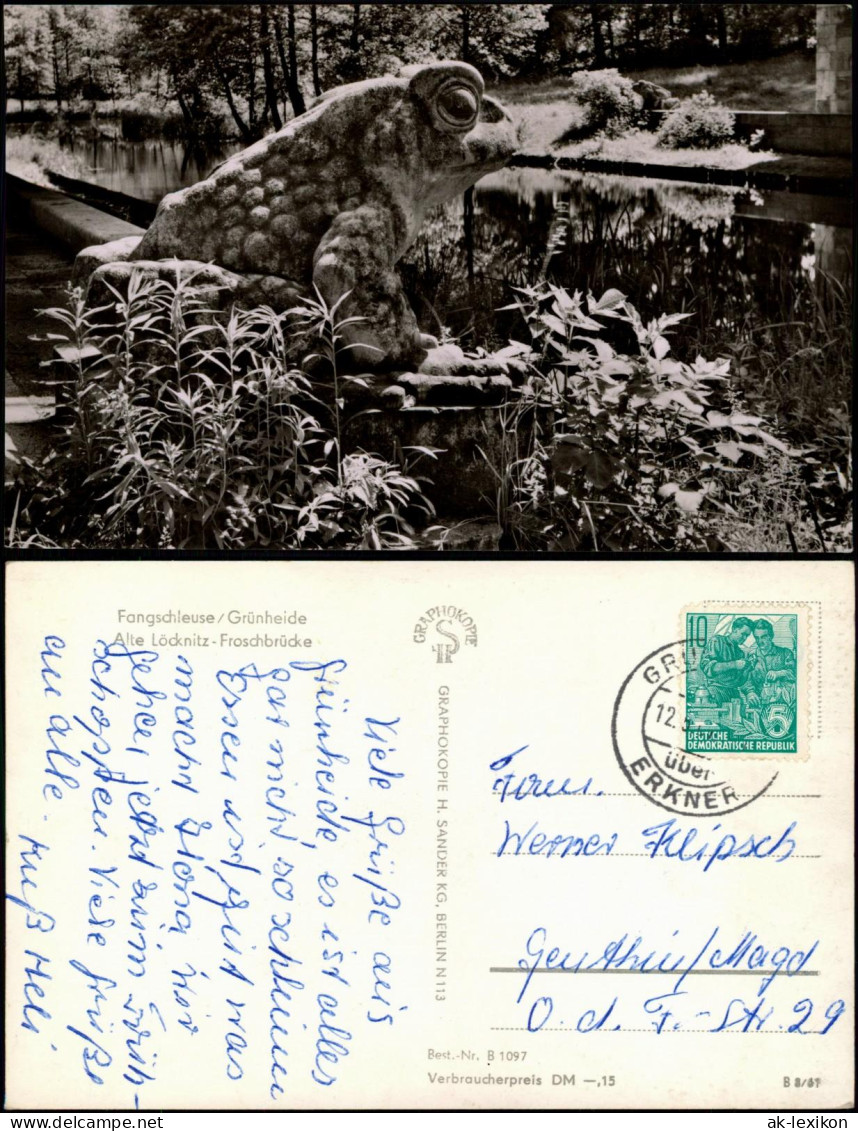 Fangschleuse/Grünheide
Alte Löcknitz-Froschbrücke
GRAPHOKOPIE
GRAPHOKOPIE H. SANDER KG, BERLIN N 113
Viele Grüße aus
Grünheide, es ist alles
gar nicht so schlimm
Essen ist gut was
macht Ilona wir
gehen jetzt zum Früh-
schoppen. Viele Grüße
an alle. Kuß Heli
10
5
DEUTSCHE
DEMOKRATISCHE REPUBLIK
über
ERKNER
Fam.
Werner Klipsch
Genthin/Magd
O. d. F.-Str. 29
Best.-Nr. B 1097
Verbraucherpreis DM —,15
B 8/61
www.ansichtskartenversand.com
ak-lexikon